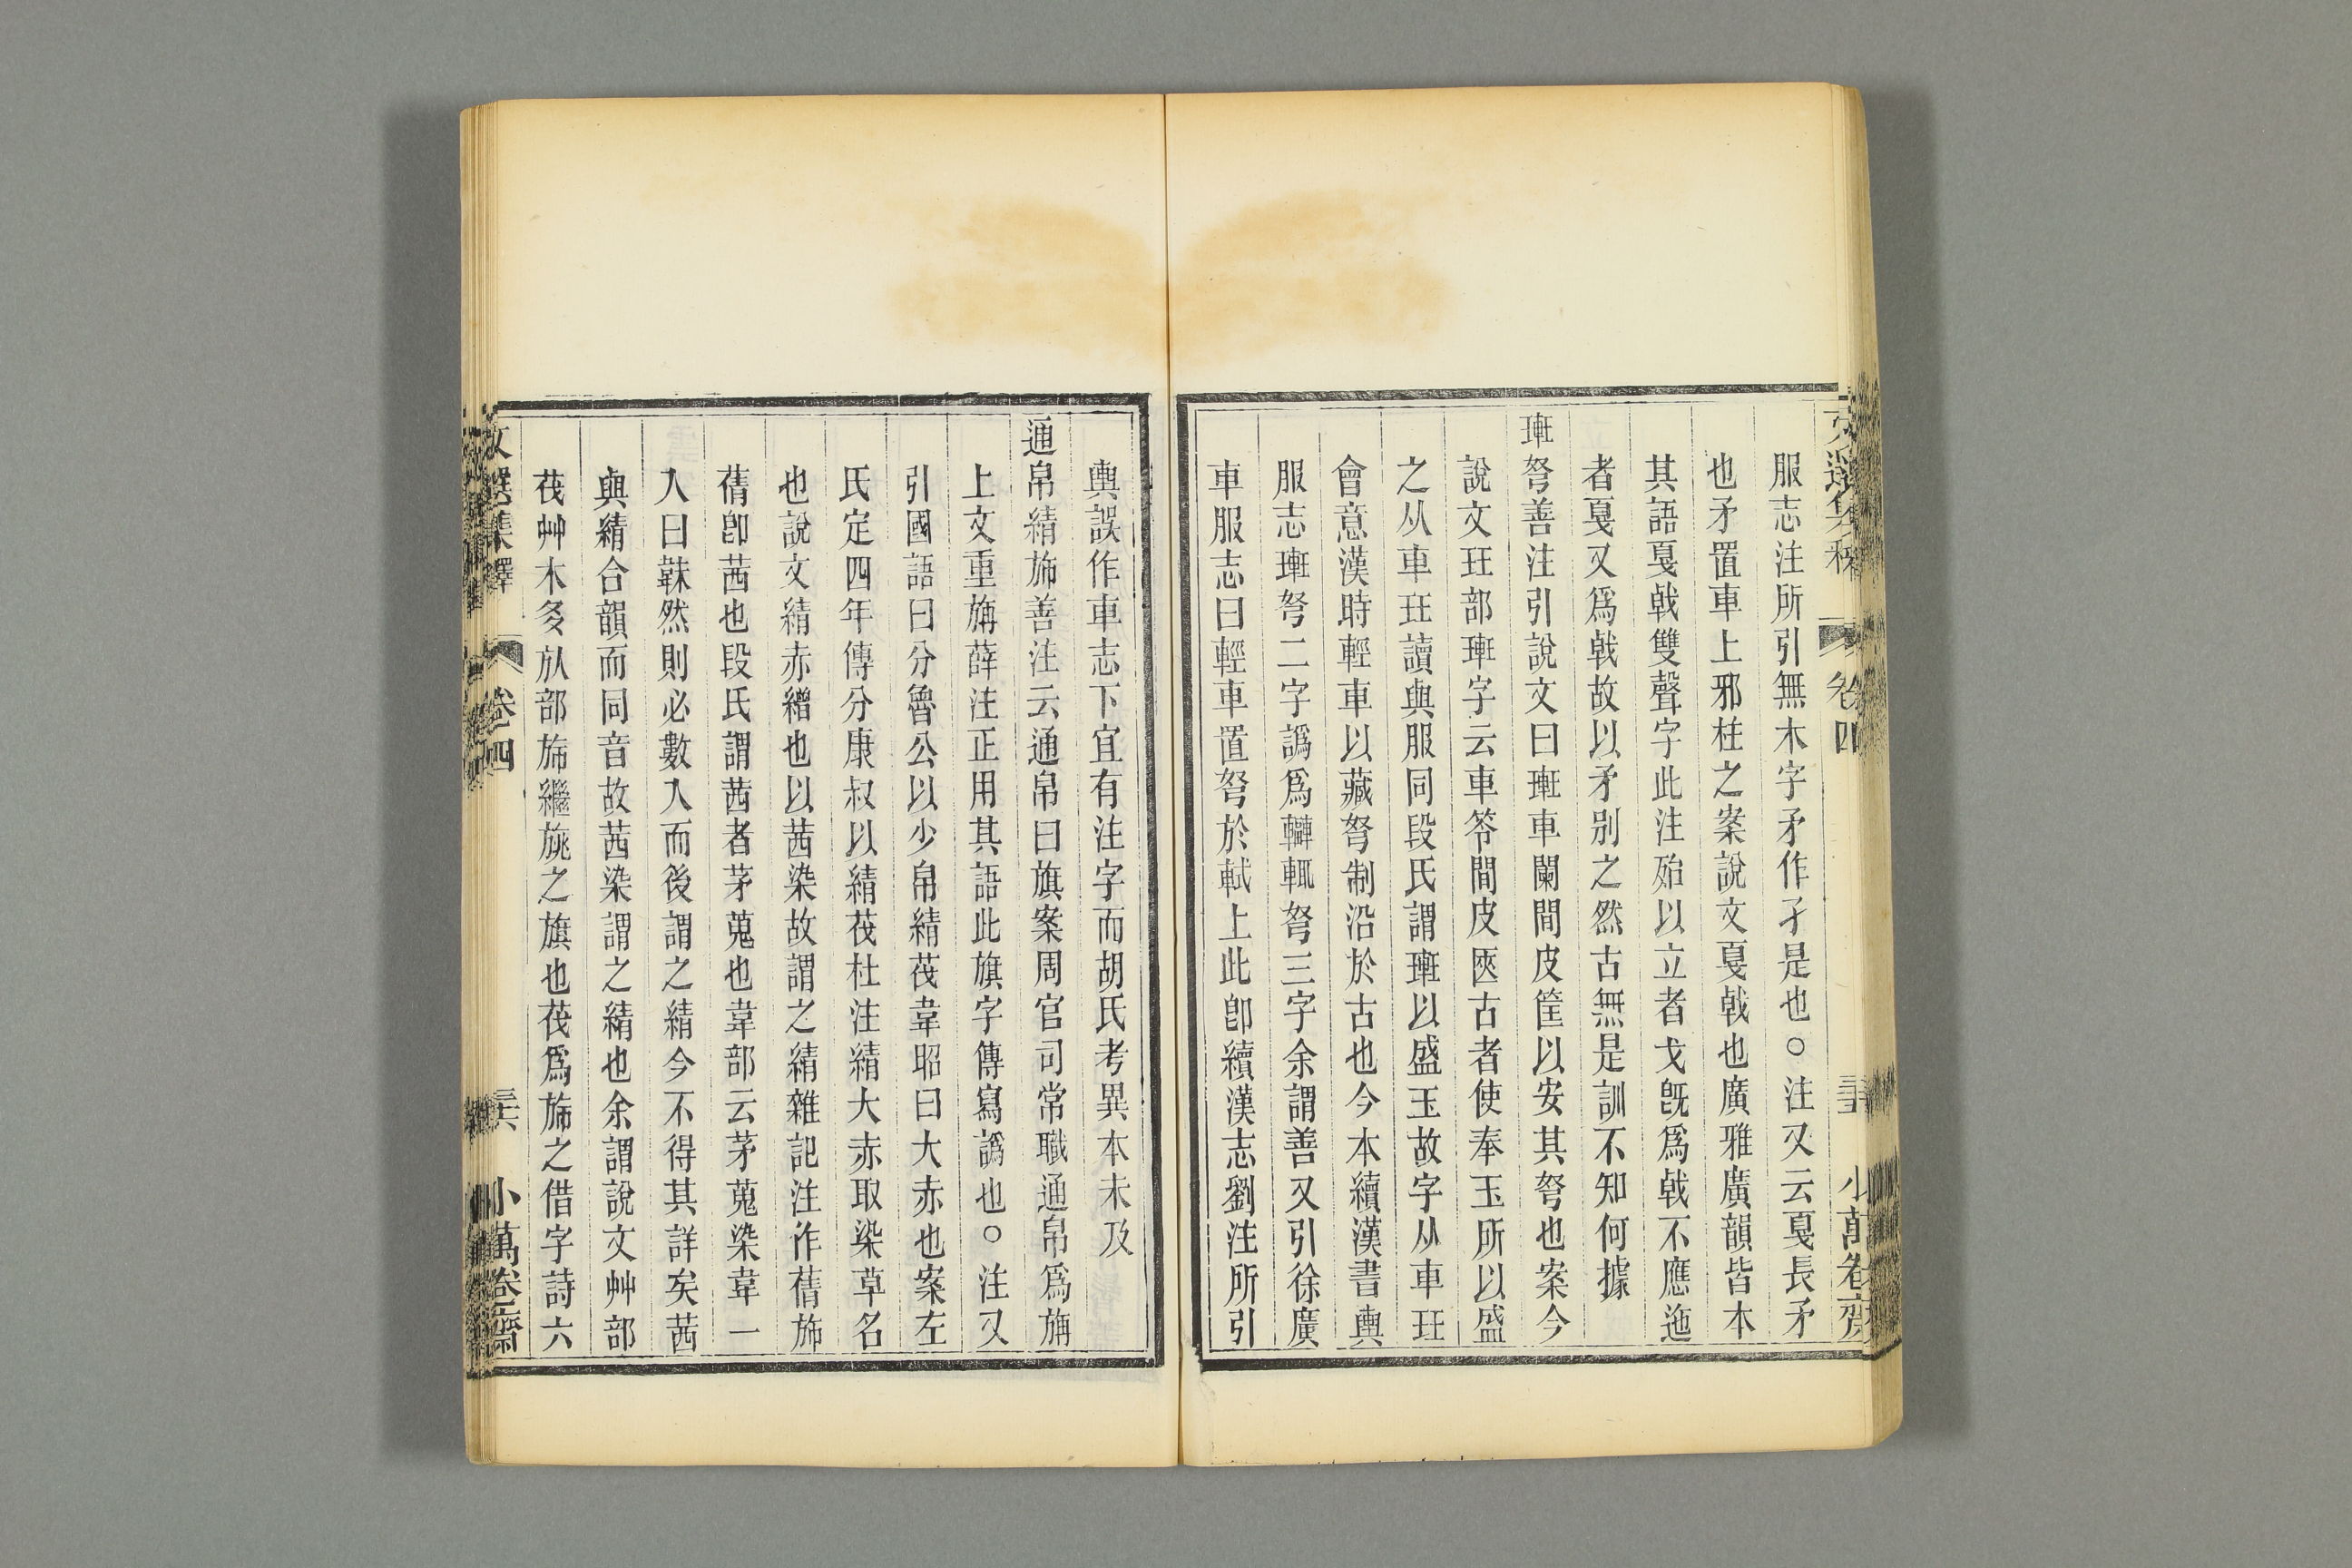 文選集釋 卷四 三五 小萬卷齋
服志注所引無木字矛作孑是也○注又云戛長矛
也矛置車上邪柱之案說文戛戟也廣雅廣韻皆本
其語戛戟雙聲字此注殆以立者戈旣爲戟不應迤
者戛又爲戟故以矛別之然古無是訓不知何據
㻒弩善注引說文曰㻒車闌間皮筐以安其弩也案今
說文玨部㻒字云車笭間皮匧古者使奉玉所以盛
之从車玨讀與服同段氏謂㻒以盛玉故字从車玨
會意漢時輕車以藏弩制沿於古也今本續漢書輿
服志㻒弩二字譌爲轓輒弩三字余謂善又引徐廣
車服志曰輕車置弩於軾上此卽續漢志劉注所引
輿誤作車志下宜有注字而胡氏考異本未及
通帛綪斾善注云通帛曰旗案周官司常職通帛爲旃
上文重旃薛注正用其語此旗字傳寫譌也○注又
引國語曰分魯公以少帛綪茷韋昭曰大赤也案左
氏定四年傳分康叔以綪茷杜注綪大赤取染草名
也說文綪赤繒也以茜染故謂之綪雜記注作蒨斾
蒨卽茜也段氏謂茜者茅蒐也韋部云茅蒐染韋一
入曰韎然則必數入而後謂之綪今不得其詳矣茜
與綪合韻而同音故茜染謂之綪也余謂說文艸部
茷艸木多㫃部斾繼旐之旗也茷爲斾之借字詩六
文選集釋 卷四 三六 小萬卷齋